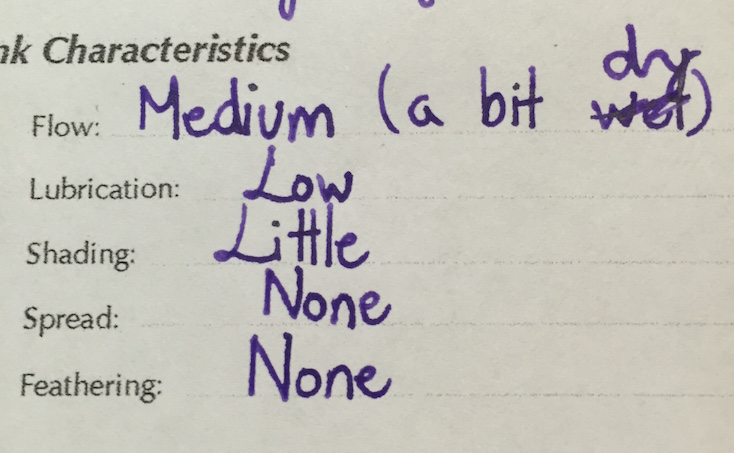 nk Characteristics
Flow: Medium (a bit dry)
Lubrication: Low
Shading: Little
Spread: None
Feathering: None